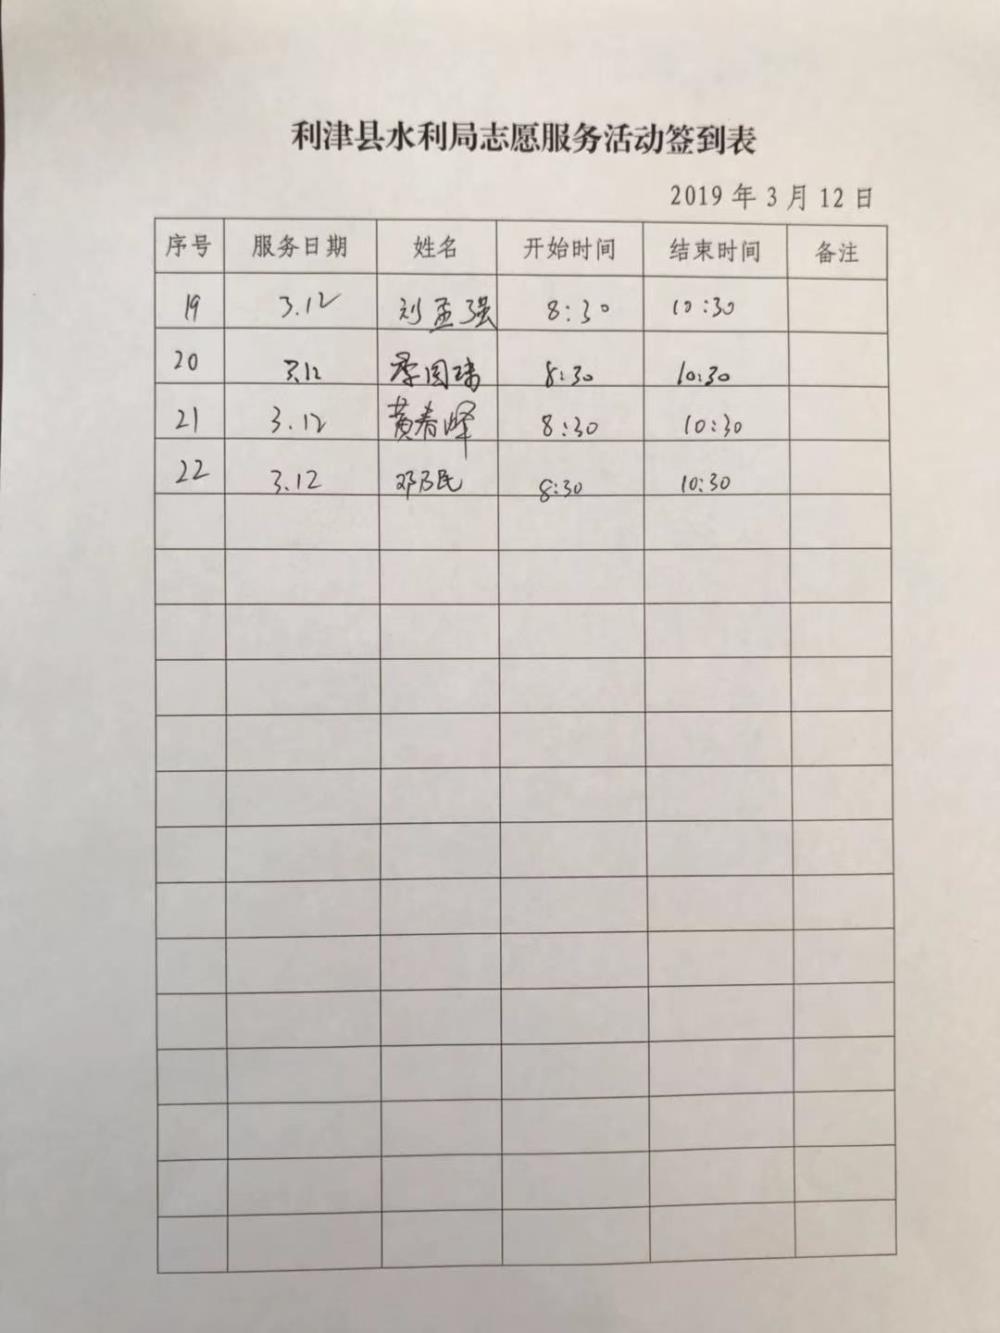 利津县水利局志愿服务活动签到表
2019 年 3 月 12 日
序号 服务日期 姓名 开始时间 结束时间 备注
19 3.12 刘孟强 8:30 10:30
20 3.12 8:30 10:30
21 3.12 黄春峰 8:30 10:30
22 3.12 邓乃民 8:30 10:30